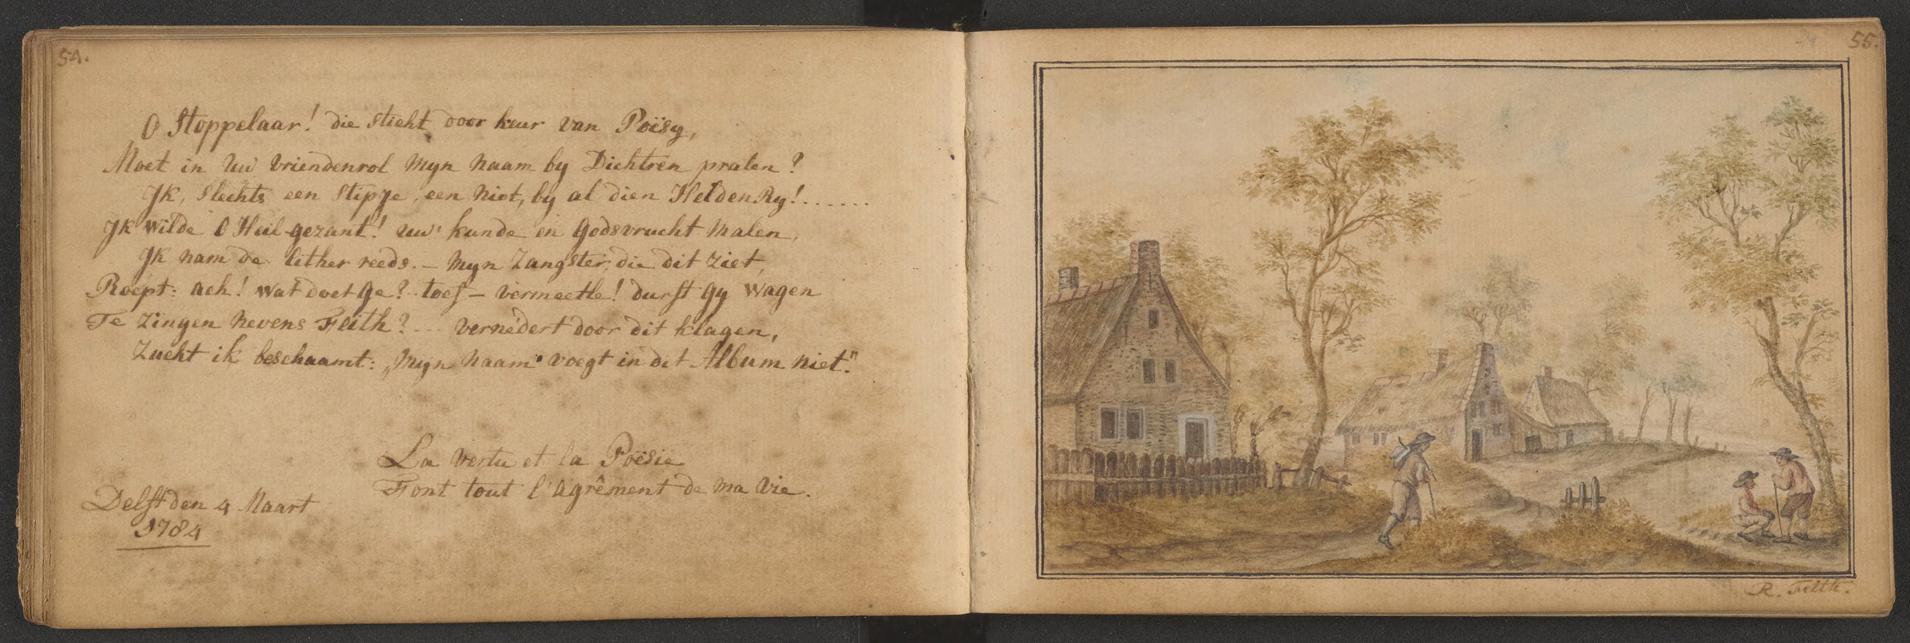 54.
O Stoppelaar! die sticht door keur van Poësy,
Moet in Uw vriendenrol Myn naam by Dichtren pralen?
Ik, slechts een stipje, een niet, by al dien HeldenRy!.......
Ik wilde O Heil-gezant! uw' kunde en Godsvrucht Malen,
Ik nam de lither reeds. — Myn Zangster, die dit ziet,
Roept: ach! wat doet Ge? toef — vermeetle! durft Gy wagen
Te Zingen nevens Feith? ... vernédert door dit klagen,
Zucht ik beschaamt: „Myn Naam voegt in dit Album niet."
La vertu et la Poësie
Font tout l'agrêment de ma vie.
Delft den 4 Maart
1784
55.
R. Feith.